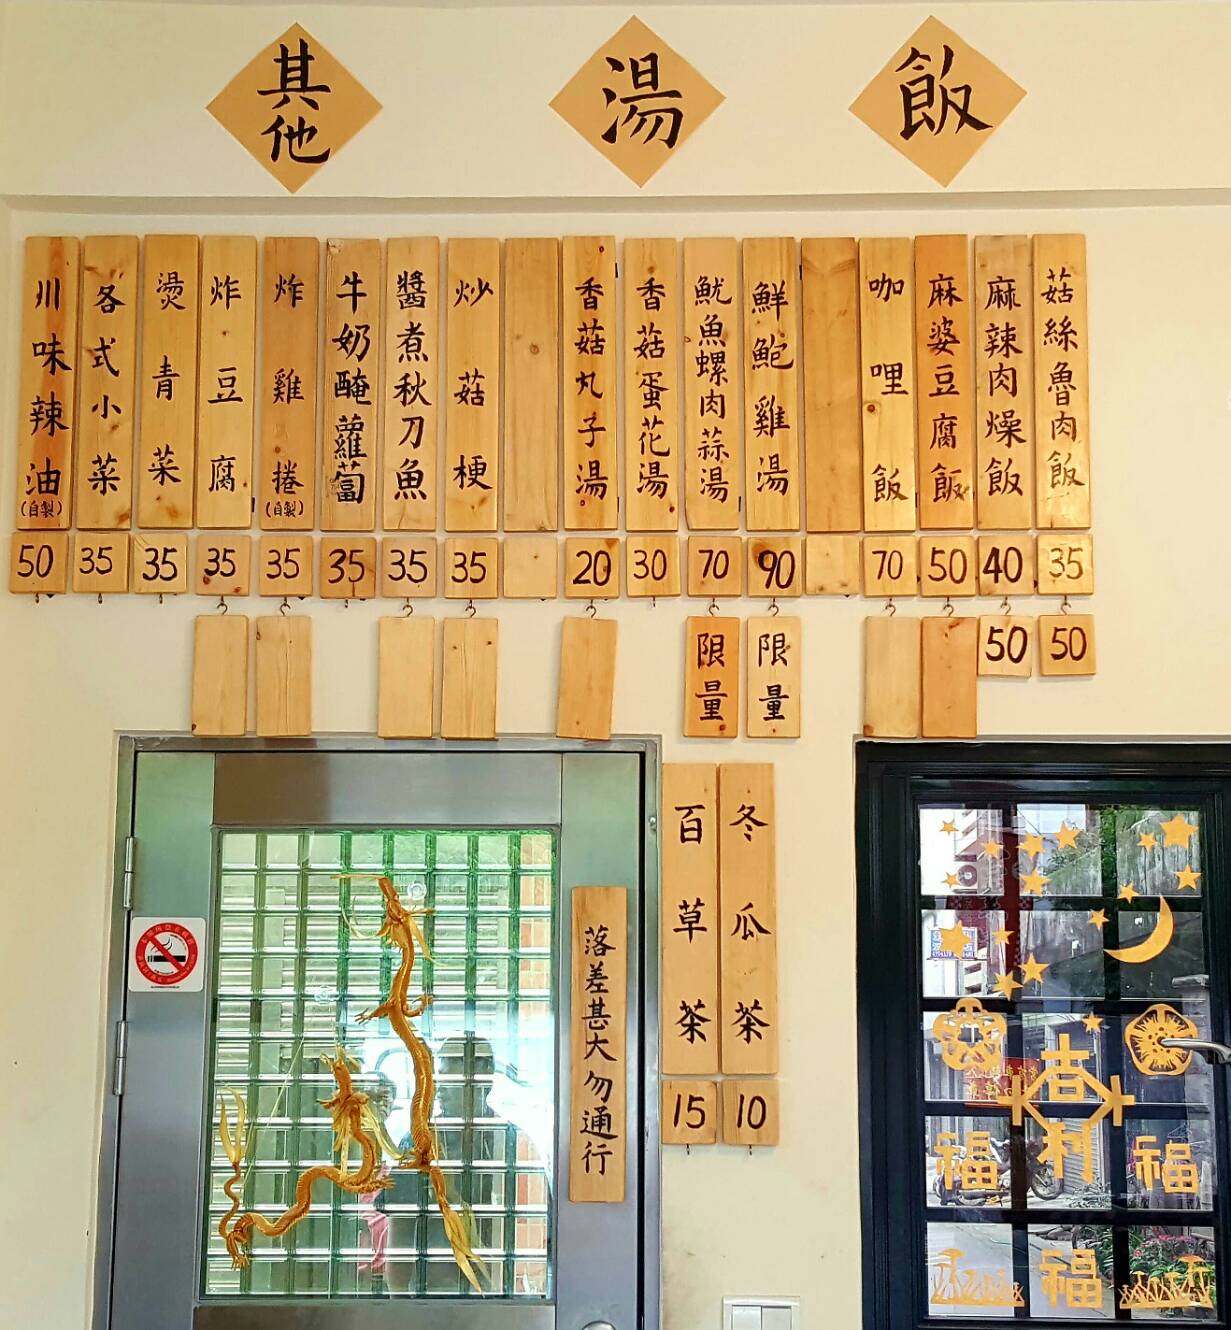 飯
菇絲魯肉飯
35
50
麻辣肉燥飯
40
50
麻婆豆腐飯
50
咖哩飯
70
湯
鮮鮑雞湯
90
限量
魷魚螺肉蒜湯
70
限量
香菇蛋花湯
30
香菇丸子湯
20
其他
炒菇梗
35
醬煮秋刀魚
35
牛奶醃蘿蔔
35
炸雞捲
(自製)
35
炸豆腐
35
燙青菜
35
各式小菜
35
川味辣油
(自製)
50
冬瓜茶
10
百草茶
15
落差甚大勿通行
吉利
福
福
福